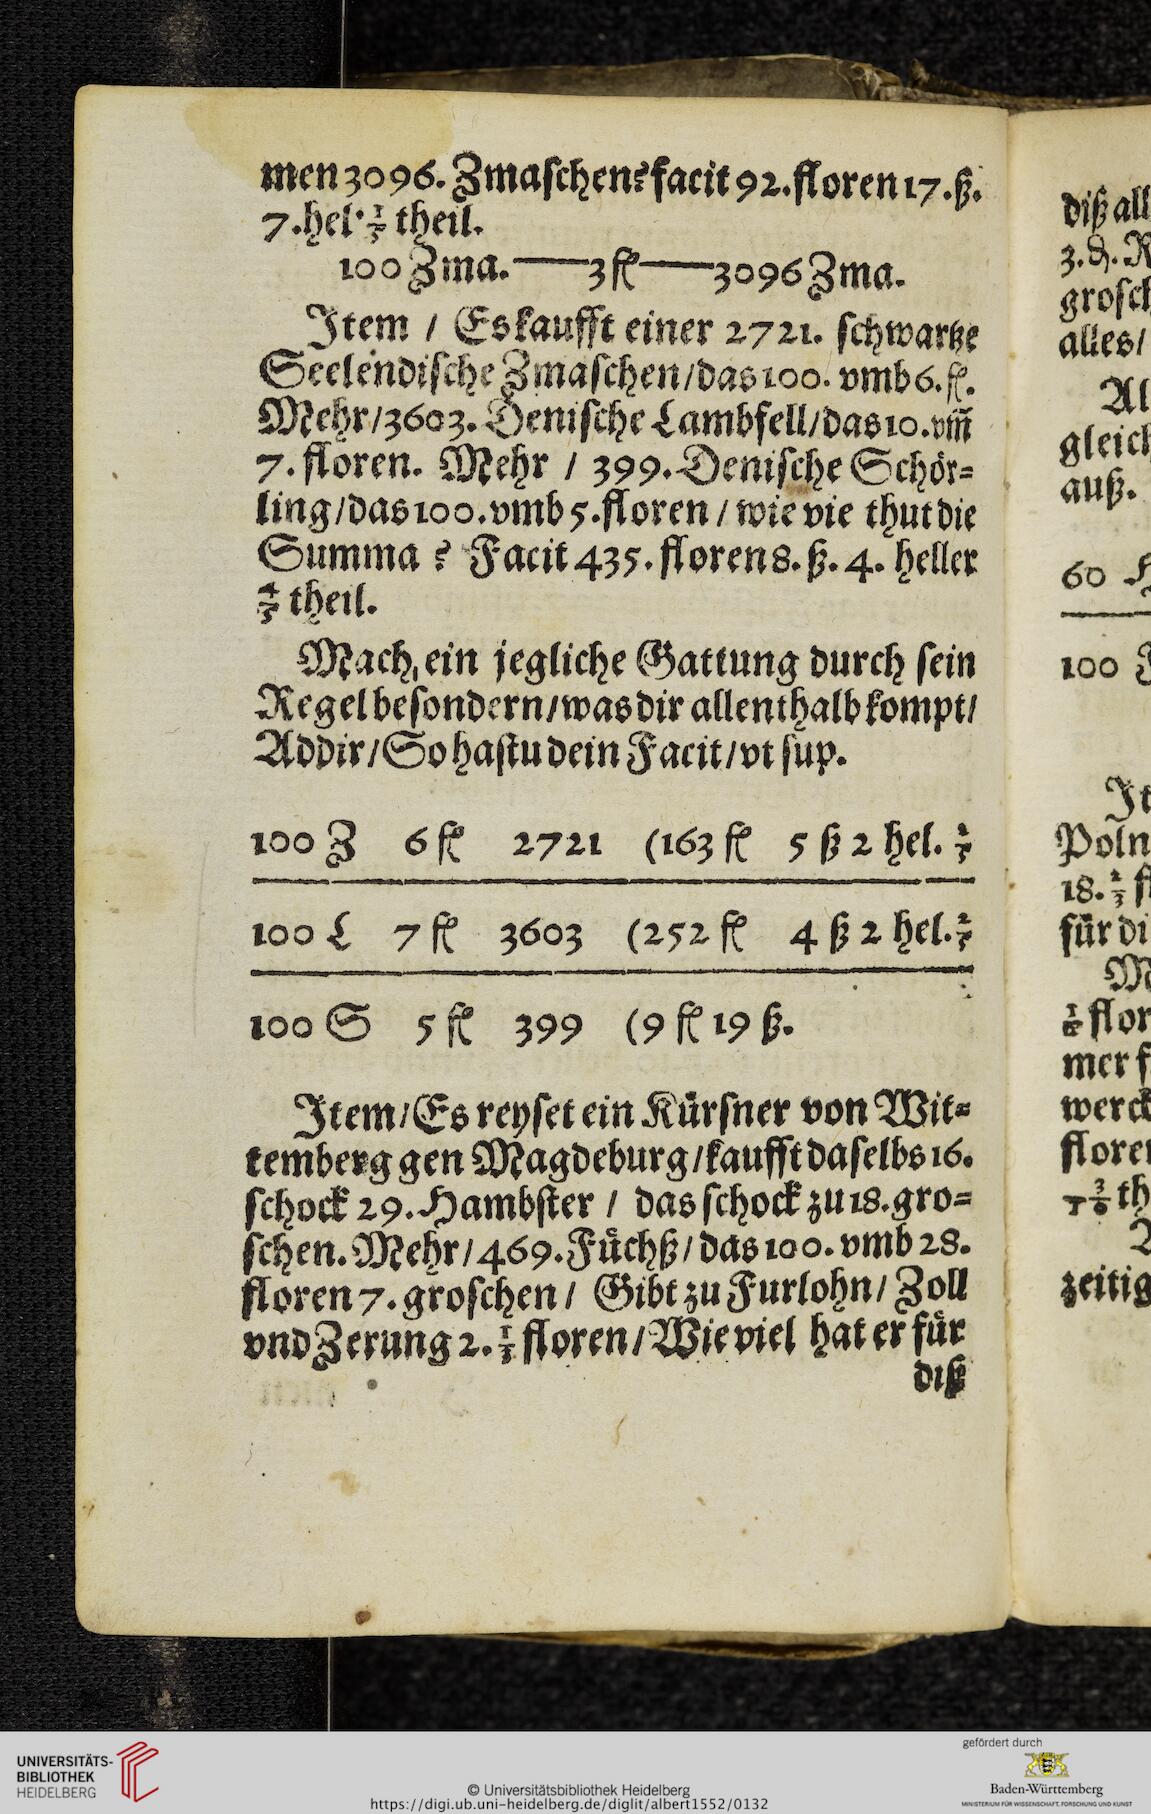 men 3096. Zmaschen? facit 92. floren 17. ß.
7. hel. 1/5 theil.
100 Zma. — 3 fl — 3096 Zma.
Item / Es kaufft einer 2721. schwartze
Seelendische Zmaschen / das 100. vmb 6. fl.
Mehr / 3603. Denische Lambfell / das 10. vm̃
7. floren. Mehr / 399. Denische Schör⸗
ling / das 100. vmb 5. floren / wie vie thut die
Summa ? Facit 435. floren 8. ß. 4. heller
4/5 theil.
Mach, ein jegliche Gattung durch sein
Regel besondern / was dir allenthalb kompt /
Addir / So hastu dein Facit / vt sup.
100 Z 6 fl 2721 (163 fl 5 ß 2 hel. 2/5
100 L 7 fl 3603 (252 fl 4 ß 2 hel. 2/5
100 S 5 fl 399 (9 fl 19 ß.
Item / Es reyset ein Kürsner von Wit⸗
temberg gen Magdeburg / kaufft daselbs 16.
schock 29. Hambster / das schock zu 18. gro⸗
schen. Mehr / 469. Füchß / das 100. vmb 28.
floren 7. groschen / Gibt zu Furlohn / Zoll
vnd Zerung 2. 1/3 floren / Wie viel hat er für
diß
diß all
3. ₰. R
grosch
alles /
Al
gleich
auß.
60 H
100
It
Poln
18. 2/3 fl
für di
M
flor
mer f
werck
floren
th
zeitig
UNIVERSITÄTS-
BIBLIOTHEK
HEIDELBERG
© Universitätsbibliothek Heidelberg
https://digi.ub.uni-heidelberg.de/diglit/albert1552/0132
gefördert durch
Baden-Württemberg
MINISTERIUM FÜR WISSENSCHAFT, FORSCHUNG UND KUNST